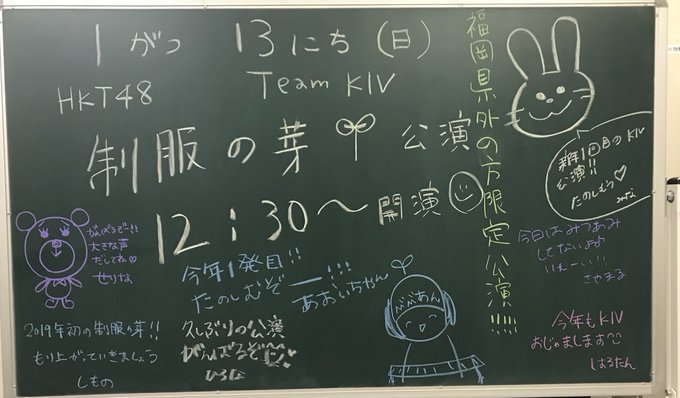 1がつ 13にち(日)
HKT48 Team KIV
制服の芽 公演
12:30〜開演
福岡県外の方限定公演!!!!!
新年1回目のKIV
公演!!
たのしもう♡
みな
がんばるぞー!!
大きな声
だしてね♡
せりな
今年1発目!!
たのしむぞーー!!!
あおいちゃん
ぶぶあん
今日はみつあみ
してないよ
いえーい!!
さやまる
2019年初の制服の芽!!
もり上がっていきましょう
しもの
久しぶりの公演
がんばるぞ
ひろな
今年もKIV
おじゃまします
しほるたん